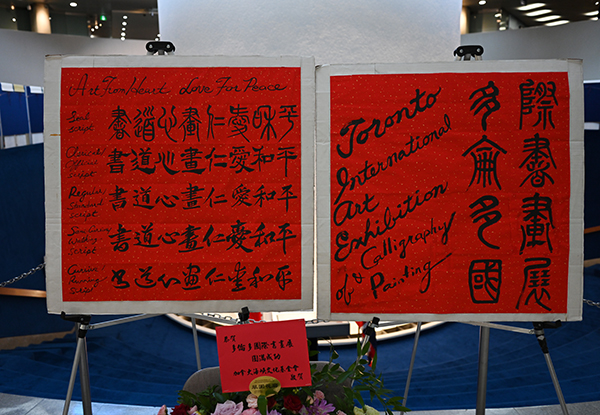 Art From Heart Love For Peace
Seal script 書道心畫仁愛和平
Clerical Official script 書道心畫仁愛和平
Regular Standard script 書道心畫仁愛和平
Semi Cursive Walking script 書道心畫仁愛和平
Cursive Running script 书道心画仁愛和平
Toronto
International
Art
Exhibition
of & Calligraphy
Painting
多侖多國
際書畫展
恭賀
多倫多國際書畫展
圓滿成功
加拿大海峽文化基金會
敬賀